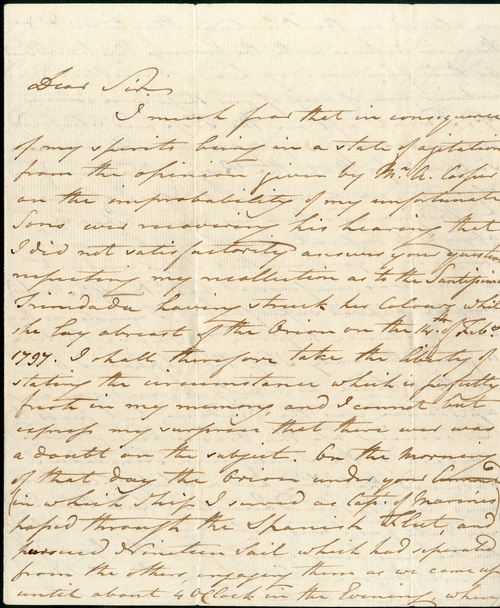 Dear Sir
I much fear that in consequence
of my spirits being in a state of agitation
from the opinion given by Mr. A. Cooper
on the improbability of my unfortunate
Sons ever recovering his hearing, that
I did not satisfactorily answer your question
respecting my recollection as to the Santissima
Trinidada having struck her Colours whilst
she lay abreast of the Orion on the 14th of Feby.
1797. I shall therefore take the liberty of
stating the circumstance which is perfectly
fresh in my memory, and I cannot but
express my surprise that there ever was
a doubt on the subject. On the Morning
of that day the Orion under your Command
(in which Ship I served as Capt. of Marines)
passed through the Spanish Fleet, and
pursued Nineteen Sail which had seperated
from the others, engaging them as we came up
until about 4 OClock in the Evening, when